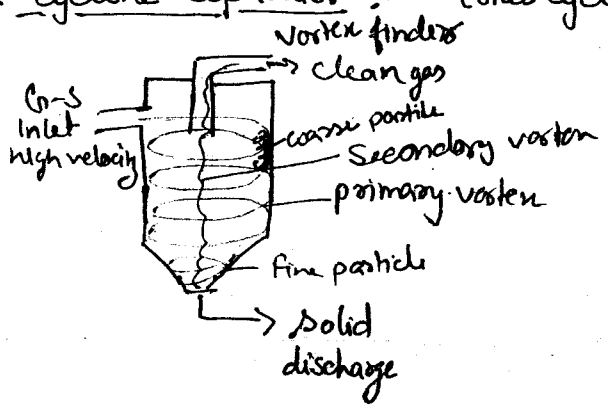 cyclone separator :
vortex finders
clean gas
G-S
Inlet
high velocity
coarse partile
Secondary vortex
primary vortex
fine particle
solid
discharge